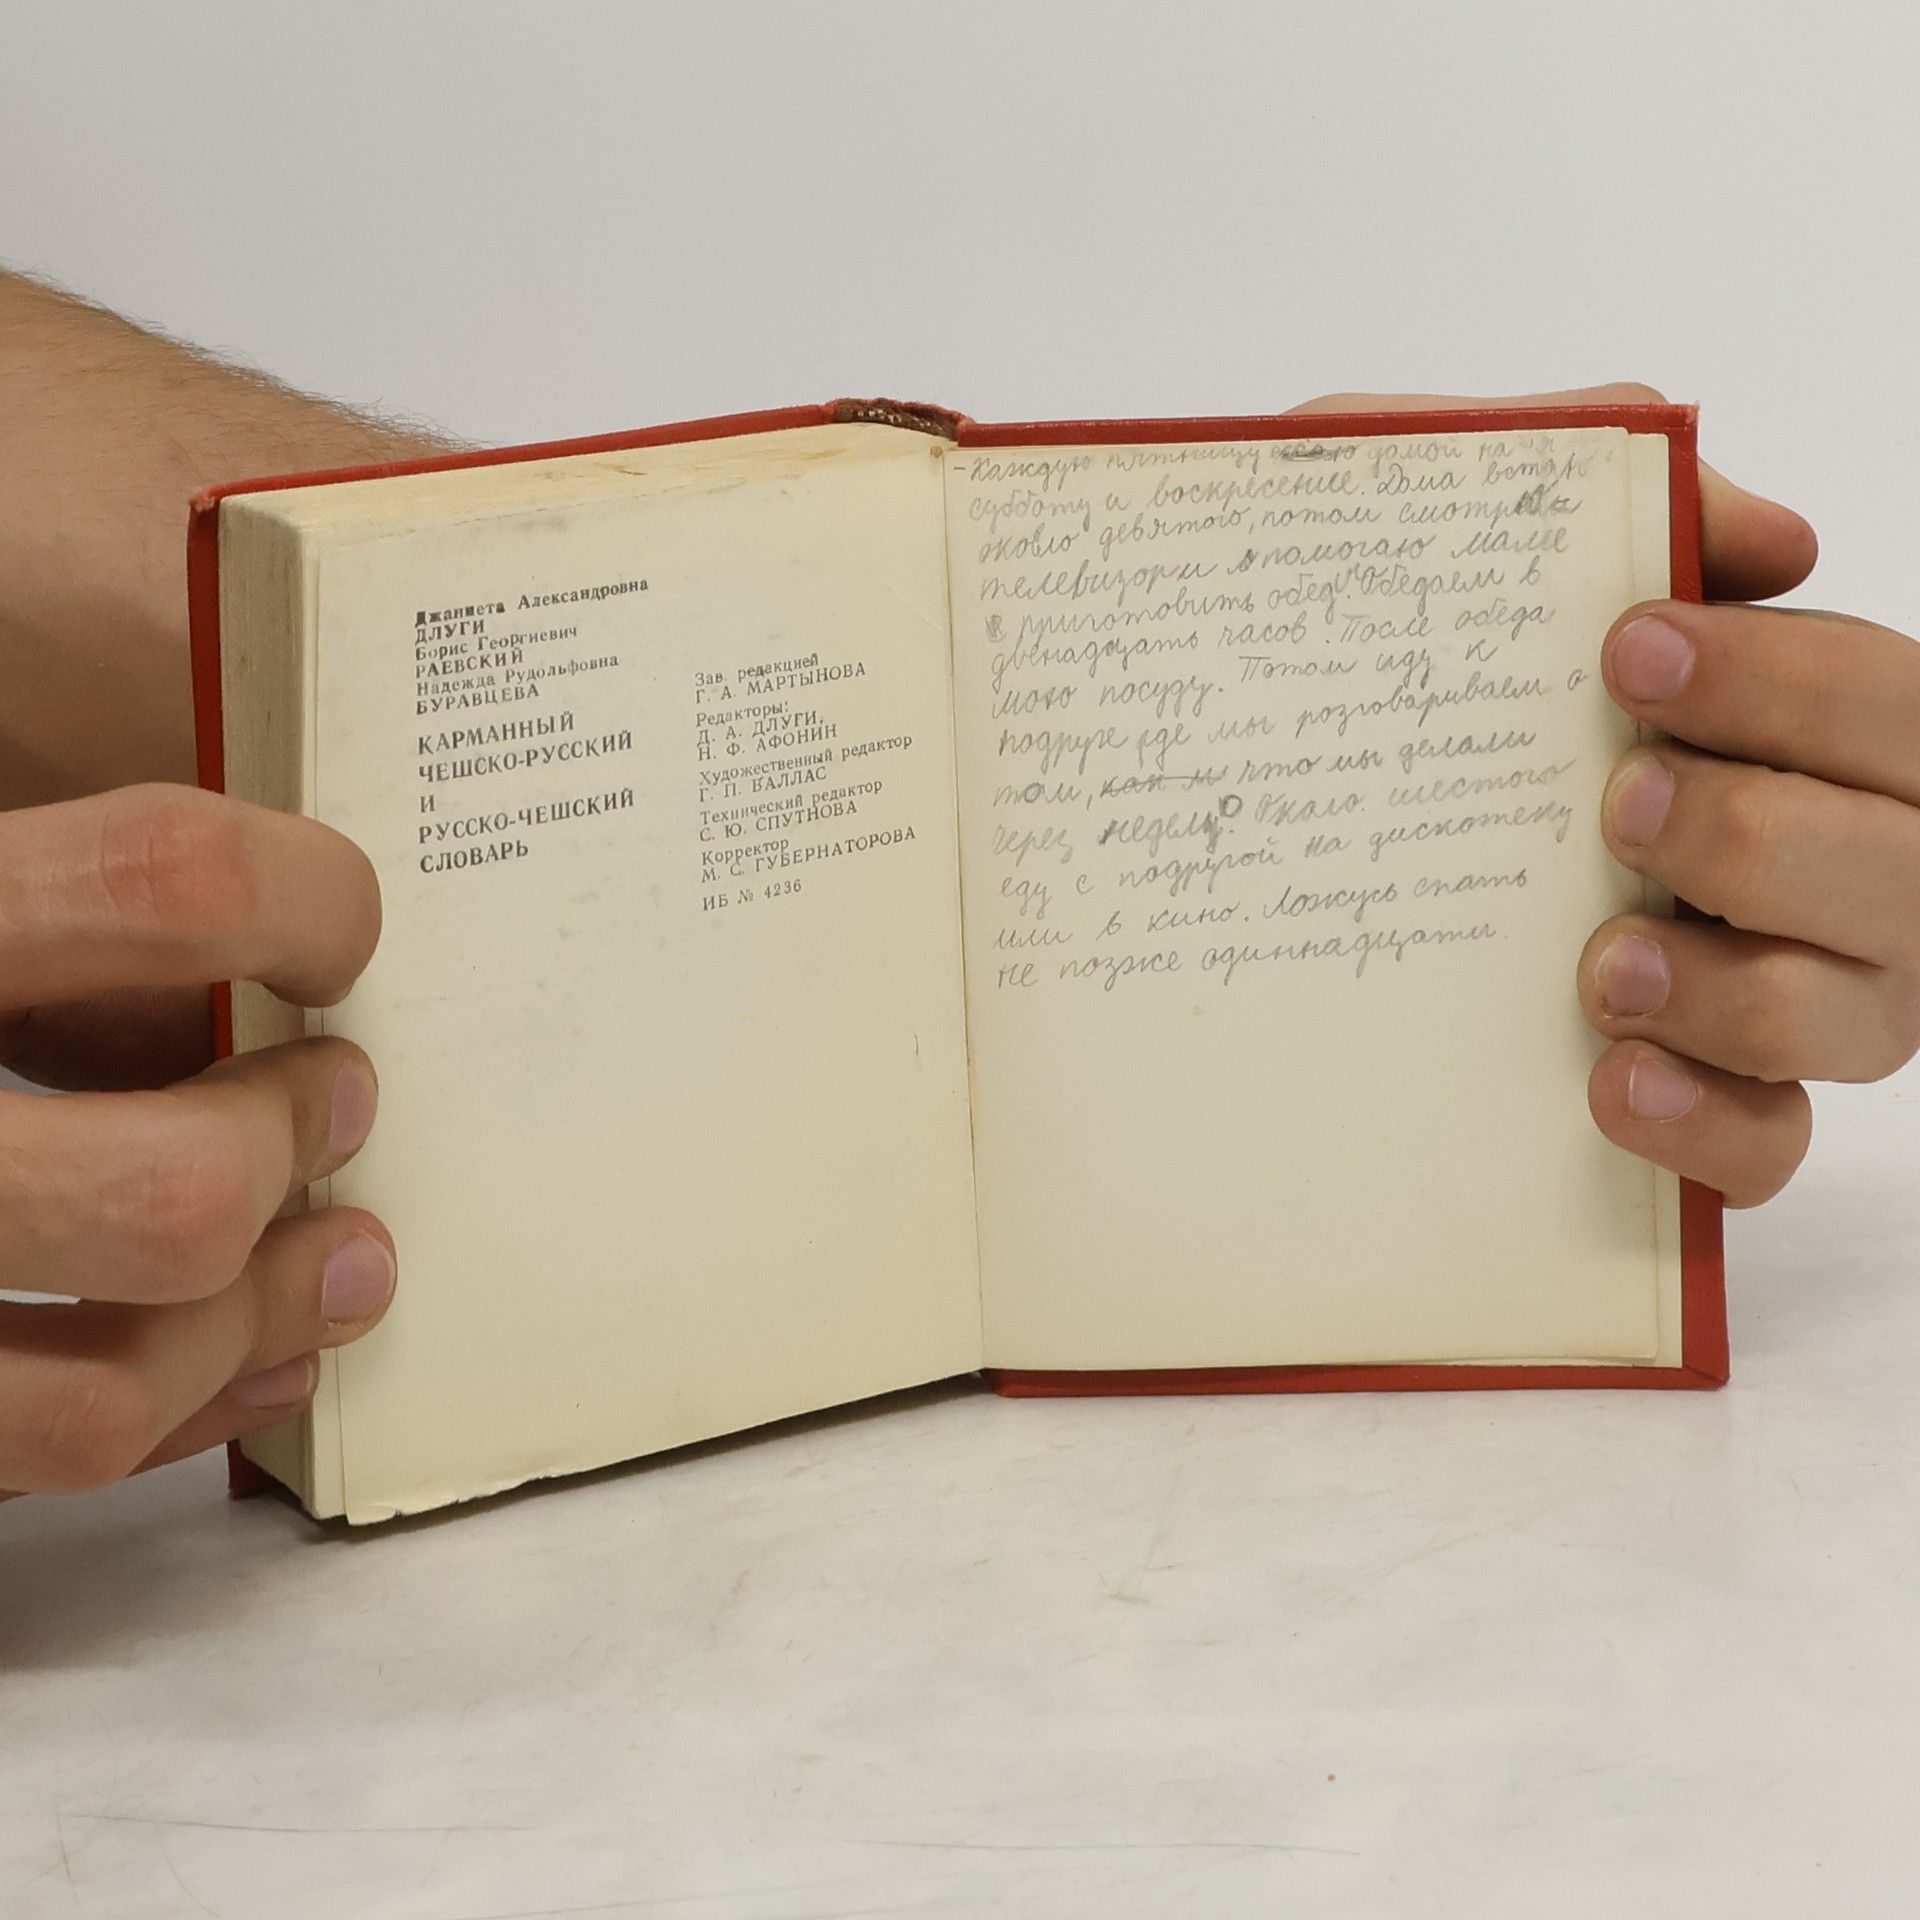 Джаннета Александровна
ДЛУГИ
Борис Георгиевич
РАЕВСКИЙ
Надежда Рудольфовна
БУРАВЦЕВА
КАРМАННЫЙ
ЧЕШСКО-РУССКИЙ
И
РУССКО-ЧЕШСКИЙ
СЛОВАРЬ
Зав. редакцией
Г. А. МАРТЫНОВА
Редакторы:
Д. А. ДЛУГИ,
Н. Ф. АФОНИН
Художественный редактор
Г. П. ВАЛЛАС
Технический редактор
С. Ю. СПУТНОВА
Корректор
М. С. ГУБЕРНАТОРОВА
ИБ № 4236
- Каждую пятницу домой на
субботу и воскресение. Дома встаю
около девятого, потом смотрю
телевизор и помогаю маме
приготовить обед. Обедаем в
двенадцать часов. После обеда
мою посуду. Потом иду к
подруге где мы розговариваем о
том, что мы делали
через неделю. Около шестого
еду с подругой на дискотеку
или в кино. Ложусь спать
не позже одиннадцати.